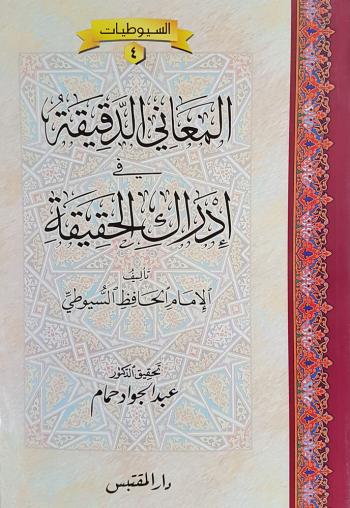 السيوطيات
٤
المعاني الدقيقة
في
إدراك الحقيقة
تأليف
الإمام الحافظ السيوطي
تحقيق الدكتور
عبد الجواد حمام
دار المقتبس